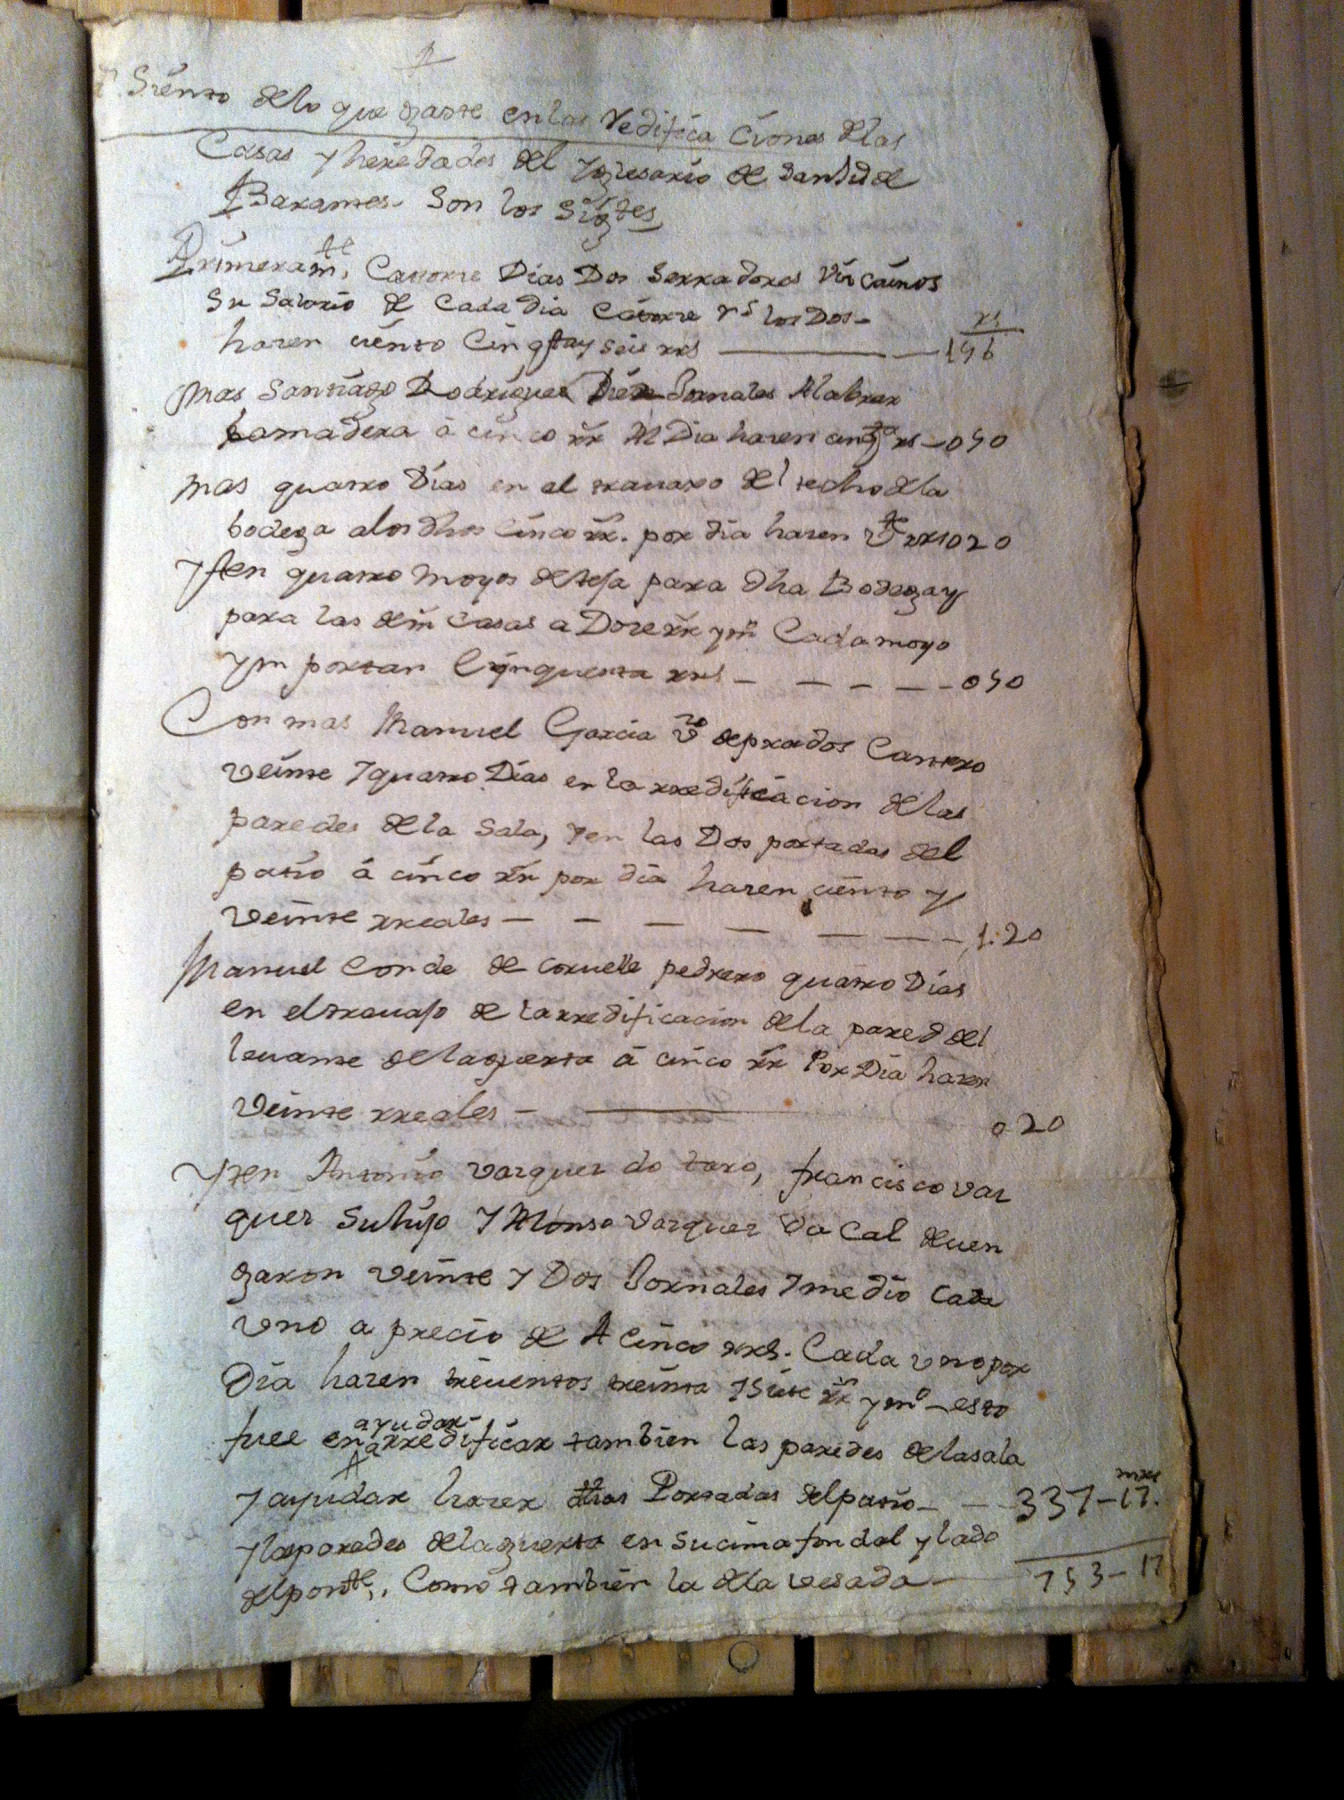 Siento delo que gaste en las Redifica ciones delas
Casas y heredades del Yglesario de
Barantes. Son los Sigtes
Primeramte, Catorze Dias Dos Serradores Vizcainos
Su Salario de Cada dia Catorze rs los Dos-
hazen ciento Cinqtay seis rrs 156
rs
mas Santiago Rodriguez Diez Jornales A labrar
la madera â cinco rr Al Dia hazen cinqta rs 050
mas quatro Dias en el trauaxo del techo dela
bodega a los dhos cinco rr. por dia hazen Vte rrs 020
Yten quatro moyos de teja para dha Bodega y
para las dem casas a Doze rr y mo Cada moyo
ym portan Cynquenta rrs - - - - - 050
Con mas Manuel Garcia Vo de prados Cantero
veinte Y quatro Dias en la rredificacion de las
paredes de la Sala, Y en las Dos portadas del
patio â cinco rr por dia hazen ciento y
veinte rreales - - - - - - 1.20
Manuel Conde de pedrero quatro Dias
en el trauajo de la rredificacion dela pared del
leuante dela guerta â cinco rr Por Dia hazen
Veinte rreales - 020
Yten Antonio vazquez do taro, francisco vaz
quez Su hijo Y Alonso Vazquez Da Cal deuen
garon veinte Y Dos Jornales Y medio Cada
vno a precio de A cinco rrs. Cada vno por
Dia hazen trecientos treinta Y Siete rr y mo - esto
ayudar
fuee en a rredificar tambien las paredes dela sala
mrs
Y ayudar hazer dhas Portadas del patio - - 337-17.
Y las paredes dela guerta en su cima fondal y lado
del ponte,. Como tambien la dela vesada 753-17